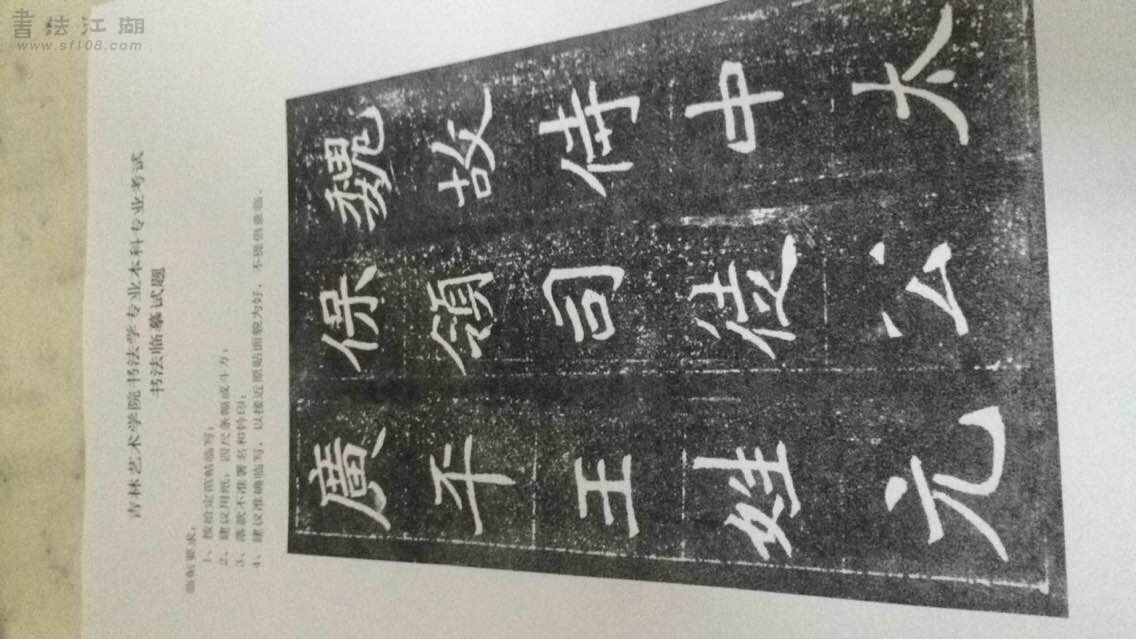 書法江湖
www.sf108.com
吉林艺术学院书法学专业本科专业考试
书法临摹试题
临帖要求：
1、按给定范帖临写；
2、建议用纸：四尺条幅或斗方；
3、落款不准署名和钤印；
4、建议准确临写，以接近原帖面貌为好，不提倡意临。
魏故侍中太
保領司徒公
廣平王姓元